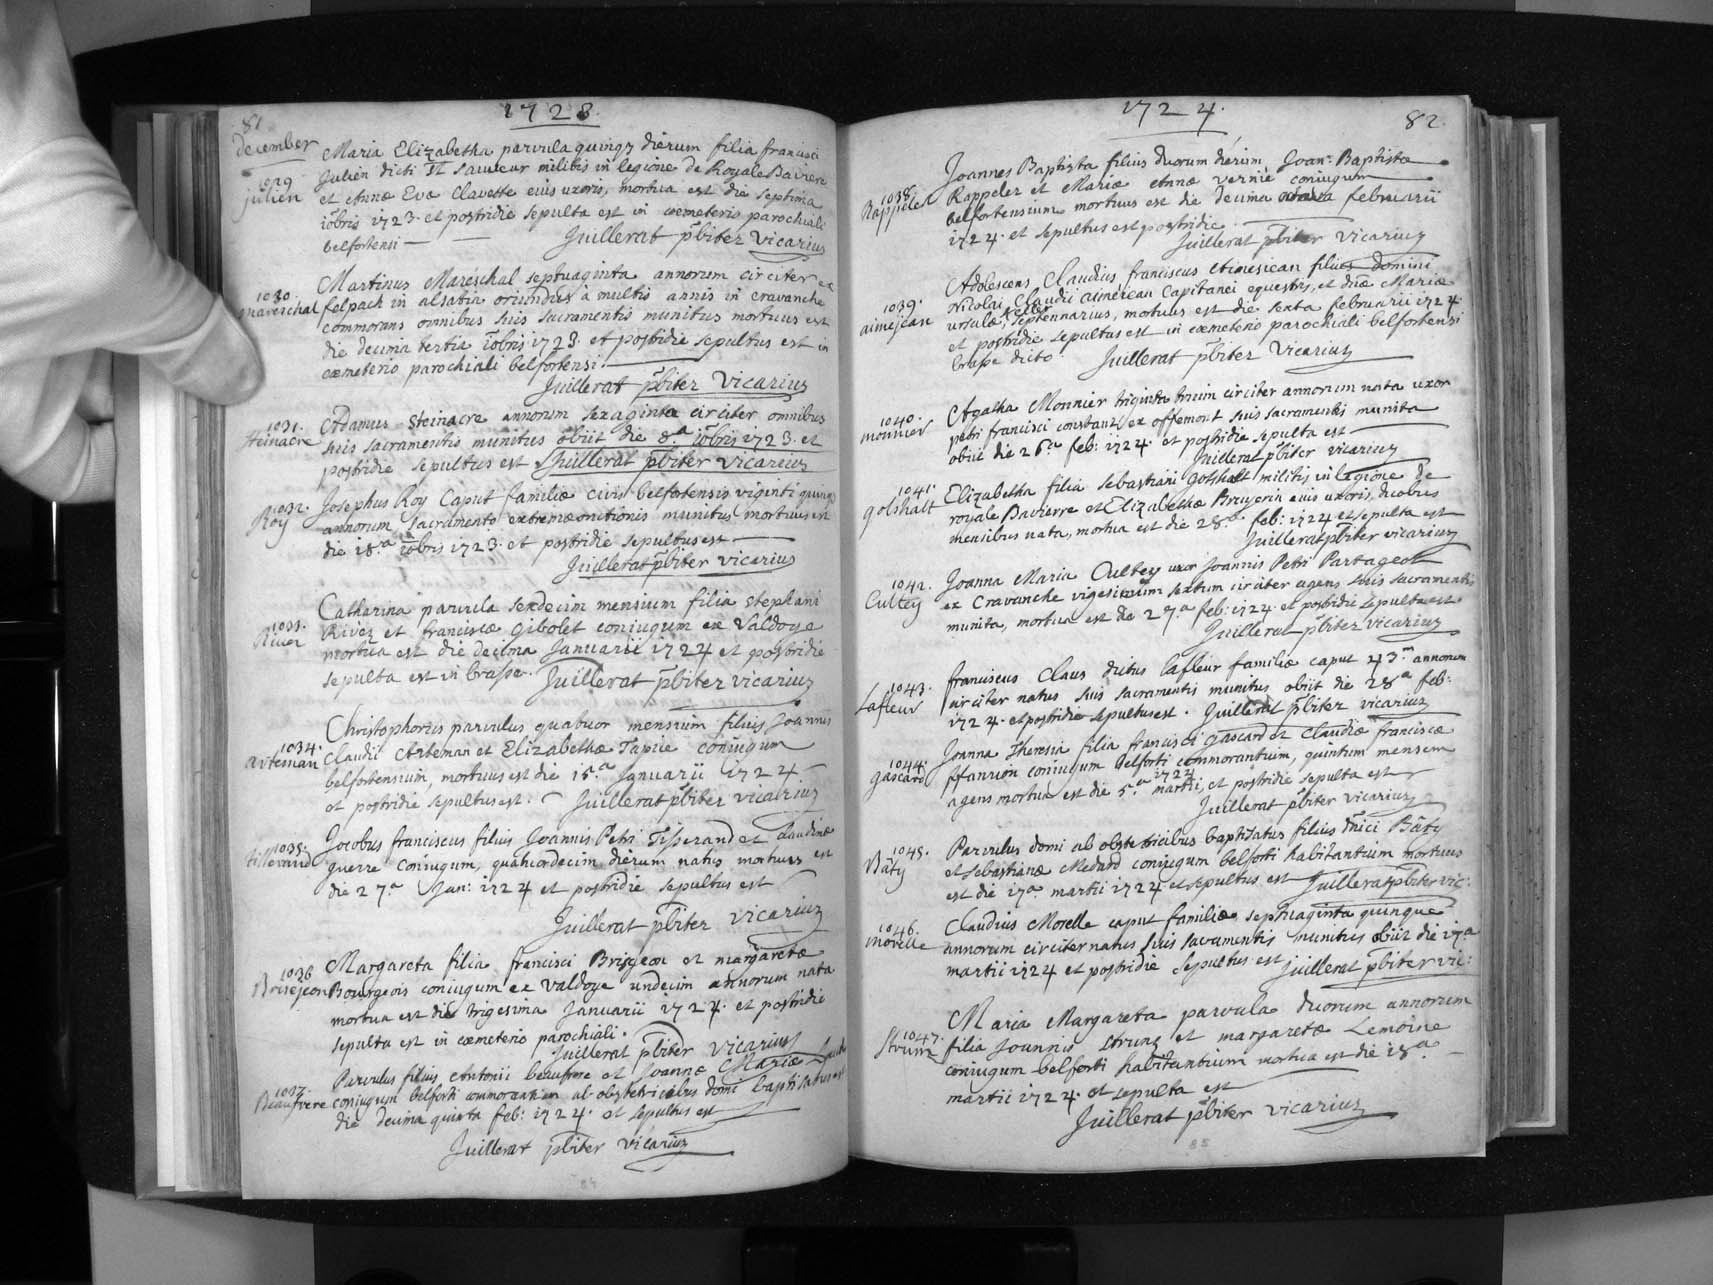 81
1723.
december
Maria Elizabetha parvula quinqz dierum filia francisci
1029
julien
Julien dicti St sauveur militis in legione de Royale Baviere
et Annæ Eva Clavette eius uxoris, mortua est die septima
xbris 1723. et postridie sepulta est in cœmeterio parochiali
belfortensi
Juillerat pbiter vicarius
Martinus Mareschal septuaginta annorum circiter ex
1030.
mareschal
felpach in alsatia oriundus a multis annis in cravanche
commorans omnibus suis sacramentis munitus mortuus est
die decima tertia xbris 1723. et postridie sepultus est in
cœmeterio parochiali belfortensi.
Juillerat pbiter vicarius
Adamus Steinacre annorum sexaginta circiter omnibus
1031.
steinacre
suis sacramentis munitus obiit die 8.a xbris 1723. et
postridie sepultus est Juillerat pbiter vicarius
1032.
Roy
Josephus Roy Caput familiæ civis belfortensis viginti quinqz
annorum sacramento extremæ onctionis munitus mortuus est
die 18.a xbris 1723. et postridie sepultus est
Juillerat pbiter vicarius
Catharina parvula sexdecim mensium filia stephani
1033.
River
Rivez et franciscæ Gibolet coniugum ex Valdoye
mortua est die decima Januarii 1724 et postridie
sepulta est in brasse. Juillerat pbiter vicarius
Christophorus parvulus quatuor mensium filius Joannis
1034.
arteman
Claudii Arteman et Elizabethæ Tapue coniugum
belfortensium, mortuus est die 15.a Januarii 1724.
et postridie sepultus est. Juillerat pbiter vicarius
Jacobus franciscus filius Joannis Petri Tisserand et Claudinæ
1035.
tisserand
guerre coniugum, quatuordecim dierum natus mortuus est
die 27.a Jan: 1724 et postridie sepultus est
Juillerat pbiter vicarius
Margareta filia francisci Brisejeon et margaretæ
1036
Brisejeon
Bourgeois coniugum ex valdoye undecim annorum nata
mortua est die trigesima Januarii 1724. et postridie
sepulta est in cœmeterio parochiali.
Juillerat pbiter vicarius
Parvulus filius Antonii beaufrere et Joannæ Mariæ
1037.
Beaufrere
coniugum belforti commorantium ab obstetricibus domi baptisatus est
die decima quinta feb: 1724. et sepultus est
Juillerat pbiter vicarius
84
1724.
82.
Joannes Baptista filius duorum dierum Joan: Baptistæ
1038.
Rappeler
Rappeler et Mariæ Annæ vernié coniugum
belfortensium mortuus est die decima februarii
1724. et sepultus est postridie
Juillerat pbiter vicarius
Adolescens Claudius franciscus Aimejean filius domini
1039.
aimejean
Nicolai Claudii aimejean Capitanei equestris, et dnæ Mariæ
ursulæ Keller, septennarius, mortuus est die sexta februarii 1724.
et postridie sepultus est in cœmeterio parochiali belfortensi
brasse dicto. Juillerat pbiter vicarius
1040.
monnier
Agatha Monnier triginta trium circiter annorum nata uxor
petri francisci constanz ex offemont suis sacramentis munita
obiit die 26.a feb: 1724. et postridie sepulta est
Juillerat pbiter vicarius
1041.
golshalt
Elizabetha filia sebastiani Golshalt militis in legione de
royale Bavierre et Elizabethæ Bruyerin eius uxoris, duobus
mensibus nata, mortua est die 28.a feb: 1724 et sepulta est
Juillerat pbiter vicarius
1042.
Cultey
Joanna Maria Cultey uxor Joannis Petri Partageot
ex Cravanche vigesimum sextum circiter agens suis sacramentis
munita, mortua est die 27.a feb: 1724. et postridie sepulta est.
Juillerat pbiter vicarius
1043.
Lafleur
franciscus Claus dictus lafleur familiæ caput 43.m annorum
circiter natus suis sacramentis munitus obiit die 28.a feb:
1724. et postridie sepultus est. Juillerat pbiter vicarius
1044.
gascard
Joanna Theresia filia francisci Gascard et Claudiæ franciscæ
coniugum belforti commorantium, quintum mensem
agens mortua est die 5.a martii 1724, et postridie sepulta est
Juillerat pbiter vicarius
1045.
Bâty
Parvulus domi ab obstetricibus baptisatus filius dnici Bâty
et sebastianæ Medard coniugum belforti habitantium mortuus
est die 17a martii 1724 et sepultus est Juillerat pbiter vic:
1046.
morelle
Claudius Morelle caput familiæ septuaginta quinque
annorum circiter natus suis sacramentis munitus obiit die 17a
martii 1724 et postridie sepultus est Juillerat pbiter vic:
1047.
Strunz
Maria Margareta parvula duorum annorum
filia Joannis Strunz et margaretæ Lemoine
coniugum belforti habitantium mortua est die 18.a
martii 1724. et sepulta est
Juillerat pbiter vicarius
85